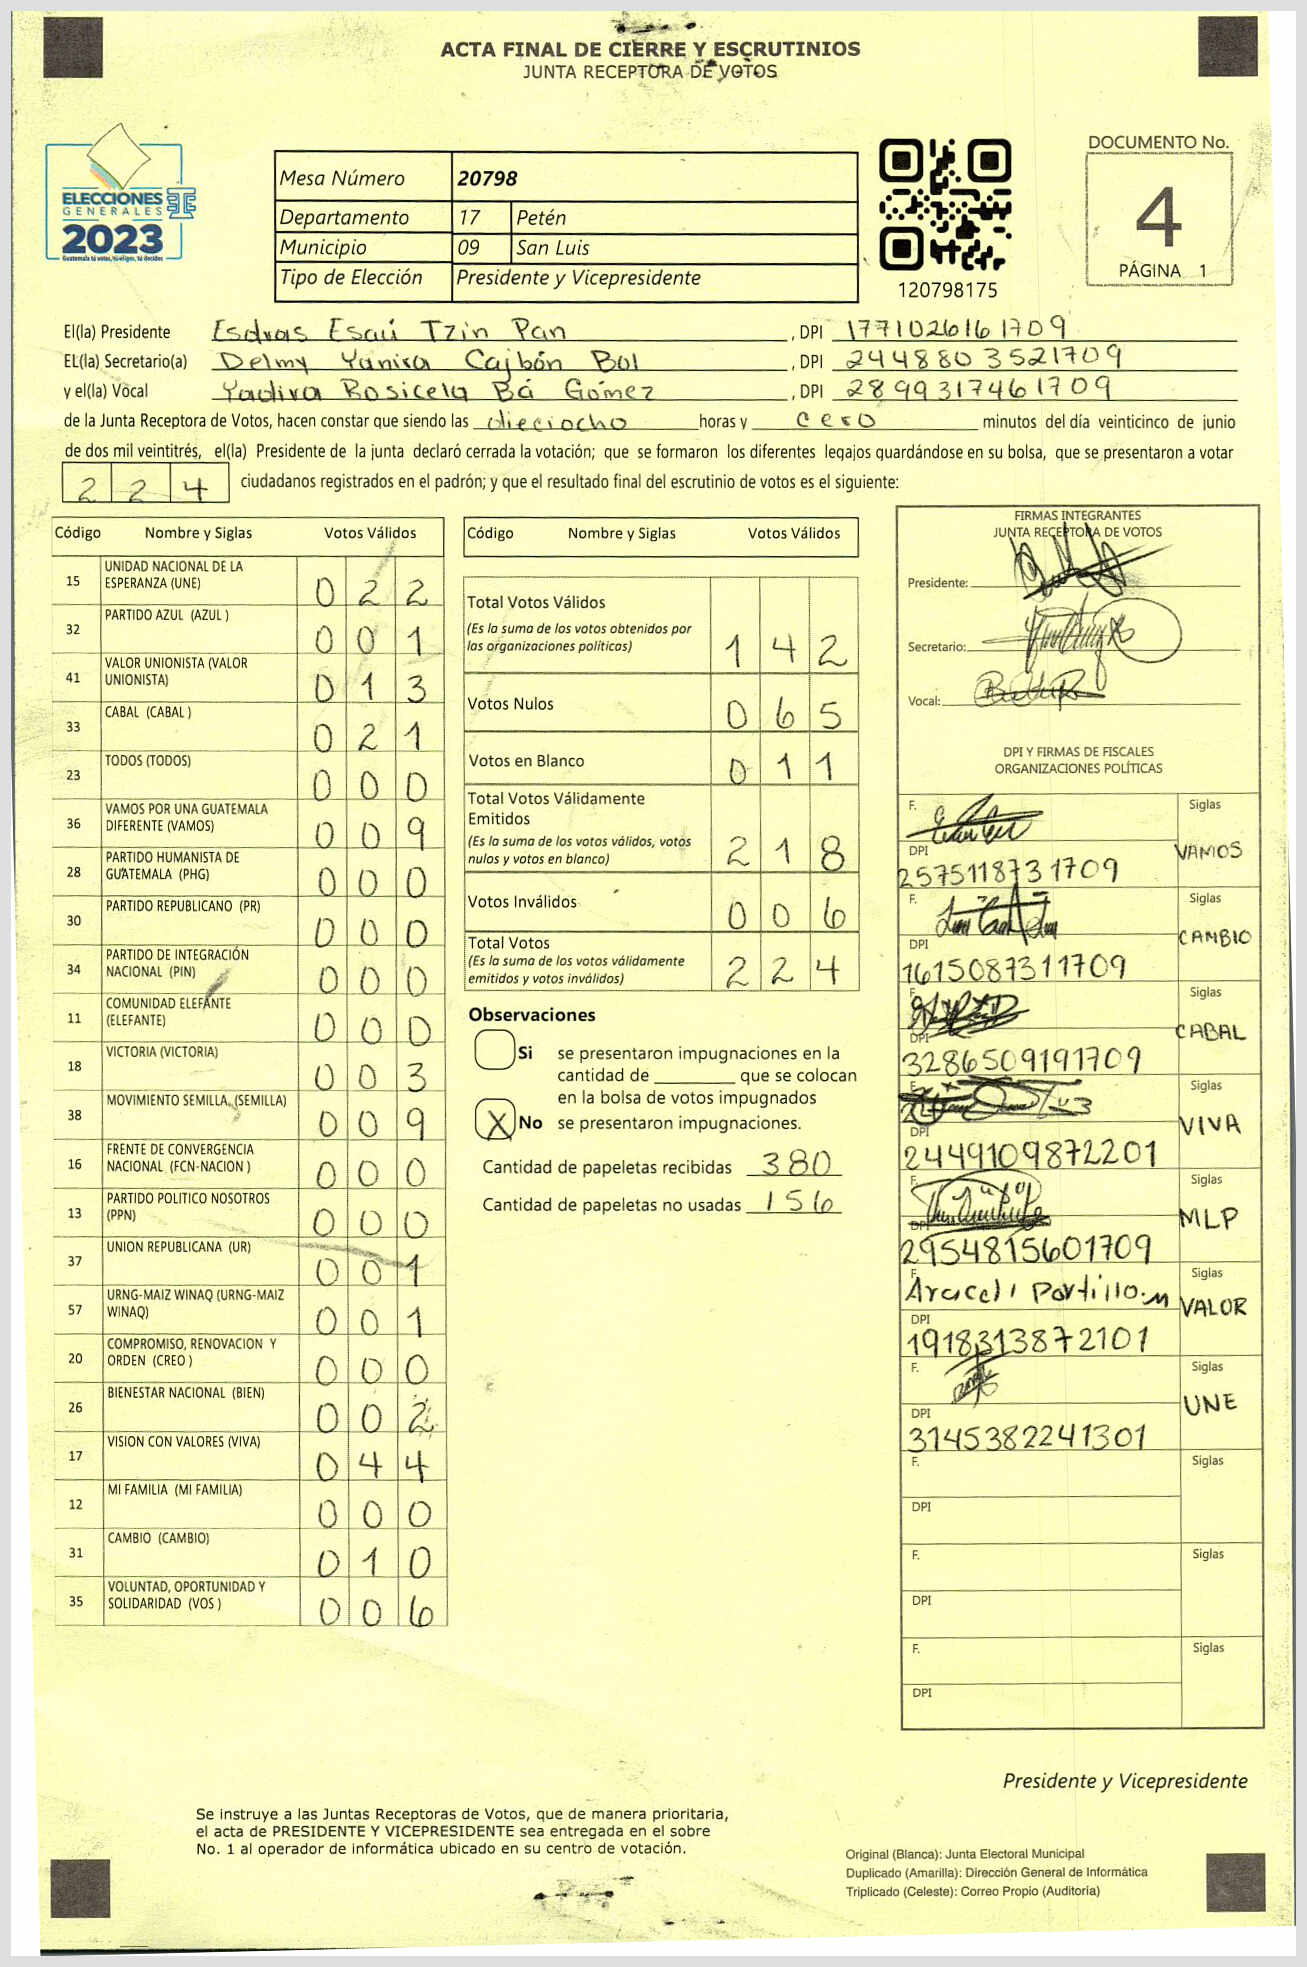 ACTA FINAL DE CIERRE Y ESCRUTINIOS
JUNTA RECEPTORA DE VOTOS
ELECCIONES
GENERALES
2023
Guatemala tú votas, tú eliges, tú decides
Mesa Número 20798
Departamento 17 Petén
Municipio 09 San Luis
Tipo de Elección Presidente y Vicepresidente
120798175
DOCUMENTO No.
4
PÁGINA 1
El(la) Presidente Esdras Esaú Tzin Pan , DPI 1771026161709
EL(la) Secretario(a) Delmy Yanisa Cajbón Bol , DPI 2448803521709
y el(la) Vocal Yadira Rosicela Bá Gómez , DPI 2899317461709
de la Junta Receptora de Votos, hacen constar que siendo las dieciocho horas y cero minutos del día veinticinco de junio
de dos mil veintitrés, el(la) Presidente de la junta declaró cerrada la votación; que se formaron los diferentes legajos guardándose en su bolsa, que se presentaron a votar
224 ciudadanos registrados en el padrón; y que el resultado final del escrutinio de votos es el siguiente:
Código Nombre y Siglas Votos Válidos
15 UNIDAD NACIONAL DE LA ESPERANZA (UNE) 022
32 PARTIDO AZUL (AZUL ) 001
41 VALOR UNIONISTA (VALOR UNIONISTA) 013
33 CABAL (CABAL ) 021
23 TODOS (TODOS) 000
36 VAMOS POR UNA GUATEMALA DIFERENTE (VAMOS) 009
28 PARTIDO HUMANISTA DE GUATEMALA (PHG) 000
30 PARTIDO REPUBLICANO (PR) 000
34 PARTIDO DE INTEGRACIÓN NACIONAL (PIN) 000
11 COMUNIDAD ELEFANTE (ELEFANTE) 000
18 VICTORIA (VICTORIA) 003
38 MOVIMIENTO SEMILLA (SEMILLA) 009
16 FRENTE DE CONVERGENCIA NACIONAL (FCN-NACION ) 000
13 PARTIDO POLITICO NOSOTROS (PPN) 000
37 UNION REPUBLICANA (UR) 001
57 URNG-MAIZ WINAQ (URNG-MAIZ WINAQ) 001
20 COMPROMISO, RENOVACION Y ORDEN (CREO ) 000
26 BIENESTAR NACIONAL (BIEN) 002
17 VISION CON VALORES (VIVA) 044
12 MI FAMILIA (MI FAMILIA) 000
31 CAMBIO (CAMBIO) 010
35 VOLUNTAD, OPORTUNIDAD Y SOLIDARIDAD (VOS ) 006
Código Nombre y Siglas Votos Válidos
Total Votos Válidos
(Es la suma de los votos obtenidos por
las organizaciones políticas) 142
Votos Nulos 065
Votos en Blanco 011
Total Votos Válidamente
Emitidos
(Es la suma de los votos válidos, votos
nulos y votos en blanco) 218
Votos Inválidos 006
Total Votos
(Es la suma de los votos válidamente
emitidos y votos inválidos) 224
Observaciones
Si se presentaron impugnaciones en la
cantidad de ________ que se colocan
en la bolsa de votos impugnados
X No se presentaron impugnaciones.
Cantidad de papeletas recibidas 380
Cantidad de papeletas no usadas 156
FIRMAS INTEGRANTES
JUNTA RECEPTORA DE VOTOS
Presidente:
Secretario:
Vocal:
DPI Y FIRMAS DE FISCALES
ORGANIZACIONES POLÍTICAS
F. Siglas
VAMOS
DPI
2575118731709
F. Siglas
CAMBIO
DPI
1615087311709
F. Siglas
CABAL
DPI
3286509191709
F. Siglas
VIVA
DPI
2449109872201
F. Siglas
MLP
DPI
2954815601709
F. Siglas
Araceli Portillo.m
VALOR
DPI
1918313872101
F. Siglas
UNE
DPI
3145382241301
F. Siglas
DPI
F. Siglas
DPI
F. Siglas
DPI
Presidente y Vicepresidente
Se instruye a las Juntas Receptoras de Votos, que de manera prioritaria,
el acta de PRESIDENTE Y VICEPRESIDENTE sea entregada en el sobre
No. 1 al operador de informática ubicado en su centro de votación.
Original (Blanca): Junta Electoral Municipal
Duplicado (Amarilla): Dirección General de Informática
Triplicado (Celeste): Correo Propio (Auditoría)